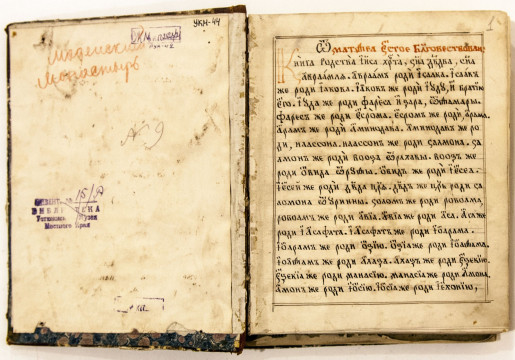 УКН-44
Монастырь
N 9
15/
Ѿ матѳеа ст҃ое бл҃говествованіе
Книга родства іи҃са хр҃та, сн҃а дв҃два, сн҃а
авраамля. авраамъ роди исаака. ісаакъ
же роди іакова. іаковъ же роди іуду, и братию
его. іуда же роди фареса и зара, ѿ ѳамары.
фаресъ же роди есрома. есромъ же роди арама.
арамъ же роди аминодава. аминодавъ же ро
ди, наассона. наассонъ же роди салмона. са
лмонъ же роди вооза ѿ рахавы. воозъ же
роди овида ѿ руѳы. овидъ же роди іесеа.
іесеи же роди дв҃да цр҃я. дв҃дъ же цр҃ь роди са
ломона ѿ уріины. саломъ же роди ровоама,
ровоамъ же роди авіа. авіа же роди аса. аса же
роди іасафата. іасафатъ же роди іѡрама.
іѡрамъ же роди озію. озіа же роди іоаѳама.
іоаѳамъ же роди ахаза. ахазъ же роди езекию.
езекіа же роди манасію. манасіа же роди амона.
амонъ же роди іѡсію. іѡсіа же роди іехонію,